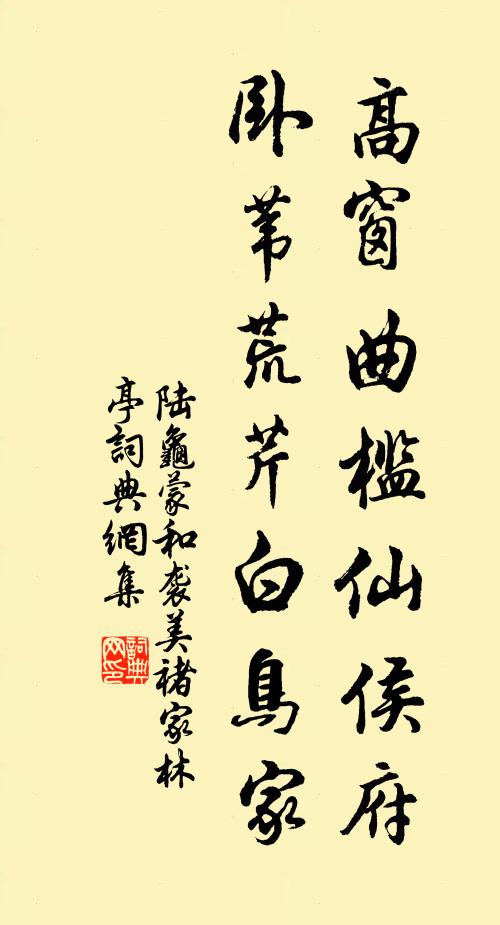 高窗曲檻仙侯府
臥葦荒芹白鳥家
陆龜蒙和袭美褚家林
亭詞典網集
詞典
网印